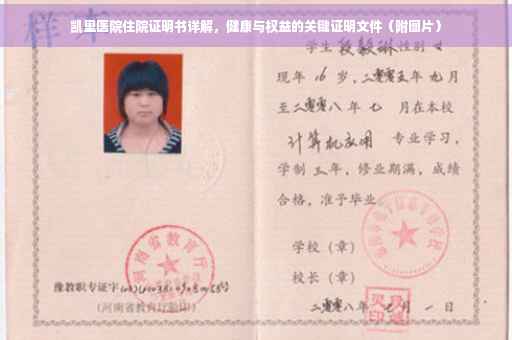 凯里医院住院证明书详解，健康与权益的关键证明文件（附图片）
样本
学生段毅琳性别女
现年16岁，二零零五年九月
至二零零八年七月在本校
计算机应用 专业学习，
学制三年，修业期满，成绩
合格，准予毕业。
学校（章）
校长（章）
二零零八年 月一日
河南省教育厅
豫教职专证字
（河南省教育厅验印）